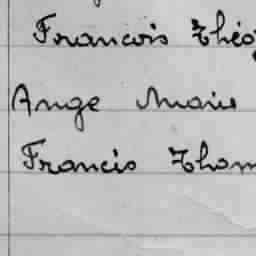 Francois Théo
Ange Marie
Francis Thom